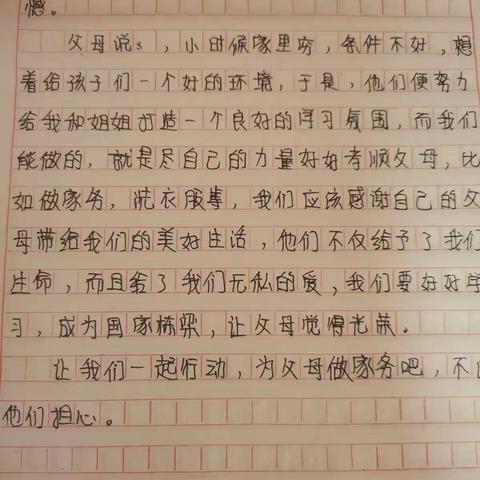 憾。
父母说:，小时候家里穷，条件不好，想
着给孩子们一个好的环境，于是，他们便努力
给我和姐姐打造一个良好的学习氛围，而我们
能做的，就是尽自己的力量好好孝顺父母，比
如做家务，洗衣服等，我们应该感谢自己的父
母带给我们的美好生活，他们不仅给予了我们
生命，而且给了我们无私的爱，我们要好好学
习，成为国家栋梁，让父母觉得光荣。
让我们一起行动，为父母做家务吧，不
他们担心。